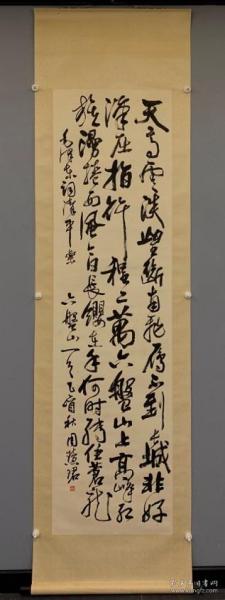 天高云淡望断南飞雁不到长城非好
汉屈指行程二万六盘山上高峰红
旗漫捲西风今日长缨在手何时缚住苍龙
毛泽东词清平乐 六盘山一首乙酉秋周慧珺